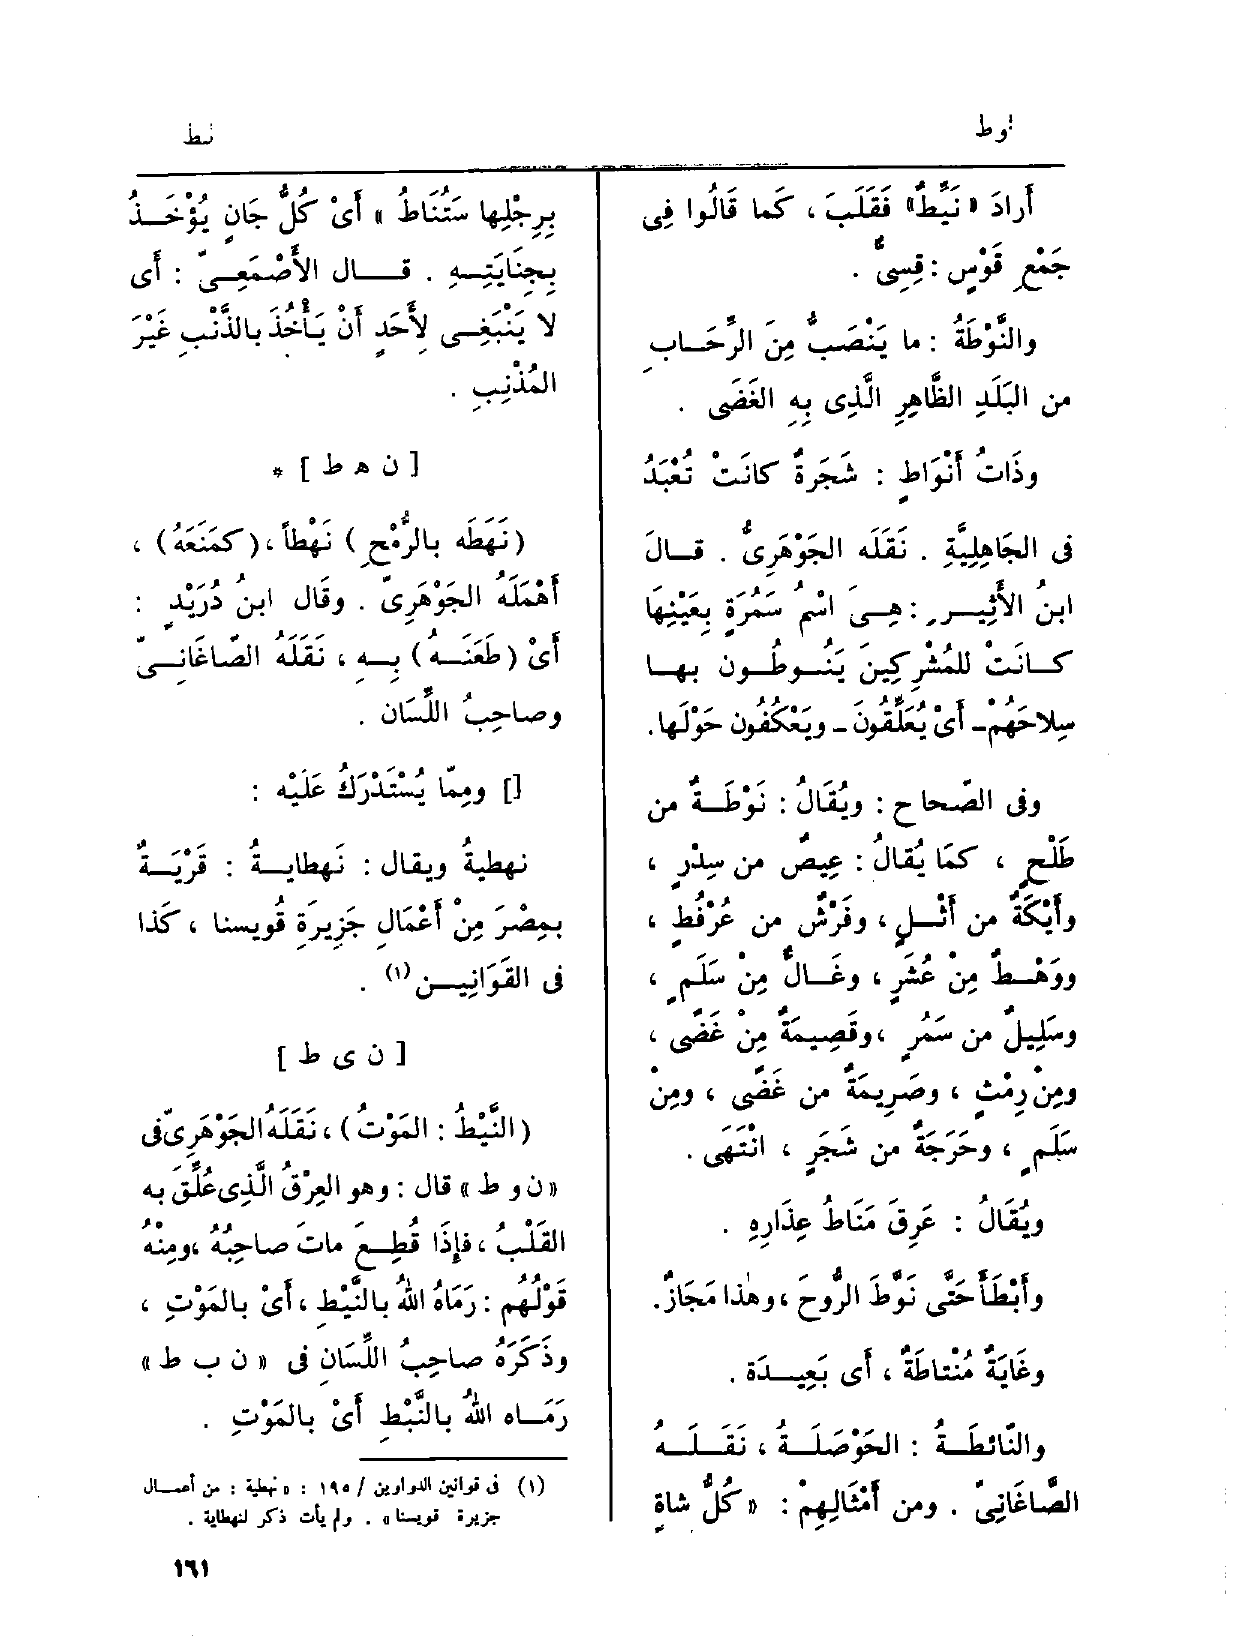 نوط
نيط
أَرادَ «نَيِّطٌ» فَقَلَبَ ، كَما قَالُوا فِى
جَمْعِ قَوْسٍ : قِسِىٌّ .
والنَّوْطَةُ : ما يَنْصَبُّ مِنَ الرِّحَــابِ
من البَلَدِ الظَّاهِرِ الَّذِى بِهِ الغَضَى .
وذَاتُ أَنْوَاطٍ : شَجَرةٌ كانَتْ تُعْبَدُ
فى الجَاهِلِيَّةِ . نَقَلَه الجَوْهَرِىُّ . قــالَ
ابنُ الأَثِيــرِ : هِــىَ اسْمُ سَمُرَةٍ بِعَيْنِهَا
كــانَتْ للمُشْرِكِينَ يَنُــوطُــون بهــا
سِلاحَهُمْ ـ أَىْ يُعَلِّقُونَ ـ ويَعْكُفُون حَوْلَها.
وفى الصّحاح : ويُقَالُ : نَوْطَــةٌ من
طَلْحٍ ، كَمَا يُقالُ : عِيصٌ من سِدْرٍ ،
وأَيْكَةٌ من أَثْــلٍ ، وفَرْشٌ من عُرْفُطٍ ،
ووَهْــطٌ مِنْ عُشَرٍ ، وغَــالٌّ مِنْ سَلَمٍ ،
وسَلِيلٌ من سَمُرٍ ، وقَصِيمَةٌ مِنْ غَضًى ،
ومِنْ رِمْثٍ ، وصَرِيمَةٌ من غَضًى ، ومِنْ
سَلَمٍ ، وحَرَجَةٌ من شَجَرٍ ، انْتَهَى .
ويُقَالُ : عَرِقَ مَنَاطُ عِذَارِهِ .
وأَبْطَأَ حَتَّى نَوَّطَ الرُّوحَ ، وهٰذا مَجَازٌ.
وغَايَةٌ مُنْتاطَةٌ ، أَى بَعِيــدَة .
والنّائطَــةُ : الحَوْصَلَــةُ ، نَقَــلَــهُ
الصَّاغَانِىّ . ومن أَمْثَالِهِمْ : « كُلُّ شاةٍ
بِرِجْلِها سَتُنَاطُ » أَىْ كُلُّ جَانٍ يُؤْخَــذُ
بِجِنَايَتِــهِ . قــال الأَصْمَعِــىّ : أَى
لا يَنْبَغِــى لِأَحَدٍ أَنْ يَأْخُذَ بالذَّنْبِ غَيْرَ
المُذْنِبِ .
[ ن ه ط ] *
(نَهَطَه بالرُّمْحِ) نَهْطاً ،(كمَنَعَهُ) ،
أَهْمَلَهُ الجَوْهَرِىّ . وقَال ابنُ دُرَيْدٍ :
أَىْ (طَعَنَــهُ) بِــه ، نَقَلَهُ الصّاغَانِــىّ
وصاحِبُ اللِّسَان .
[] ومِمّا يُسْتَدْرَكُ عَلَيْه :
نهطيةُ ويقال : نَهطايــةُ : قَرْيَــةٌ
بمِصْرَ مِنْ أَعْمَالِ جَزِيرَةِ قُويسنا ، كَذا
فى القَوَانِيــن (١) .
[ ن ى ط ]
(النَّيْطُ : المَوْتُ) ، نَقَلَهُ الجَوْهَرِىّ فى
«ن و ط» قال : وهو العِرْقُ الَّذِى عُلِّقَ به
القَلْبُ ، فإِذَا قُطِــع ماتَ صاحِبُهُ ، ومِنْهُ
قَوْلُهُم : رَمَاهُ اللهُ بالنَّيْطِ ، أَىْ بالمَوْتِ ،
وذَكَرَهُ صاحِبُ اللِّسَانِ فى « ن ب ط »
رَمَــاه اللهُ بالنَّبْطِ أَىْ بالمَوْتِ .
(١) فى قوانين الدواوين / ١٩٥ : « نهطية : من أعمــال
جزيرة قويسنا » . ولم يأت ذكر لنهطاية .
١٦١